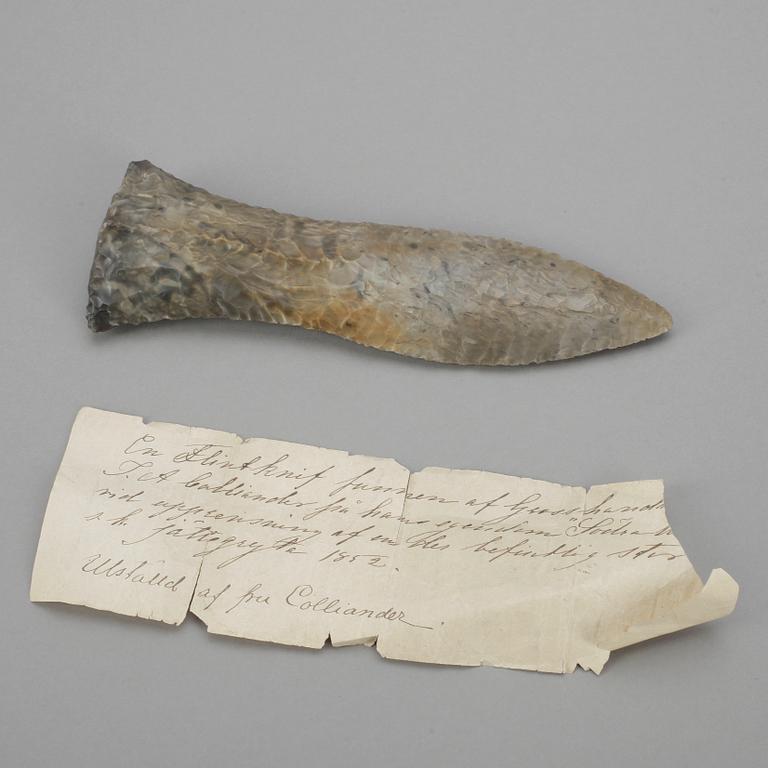 En Flintknif funnen af Grosshandl
T. A Colliander på hans egendom "Södra
vid upprensning af en der befintlig stor
s.k. jättegryta 1852.
Utställd af fru Colliander.